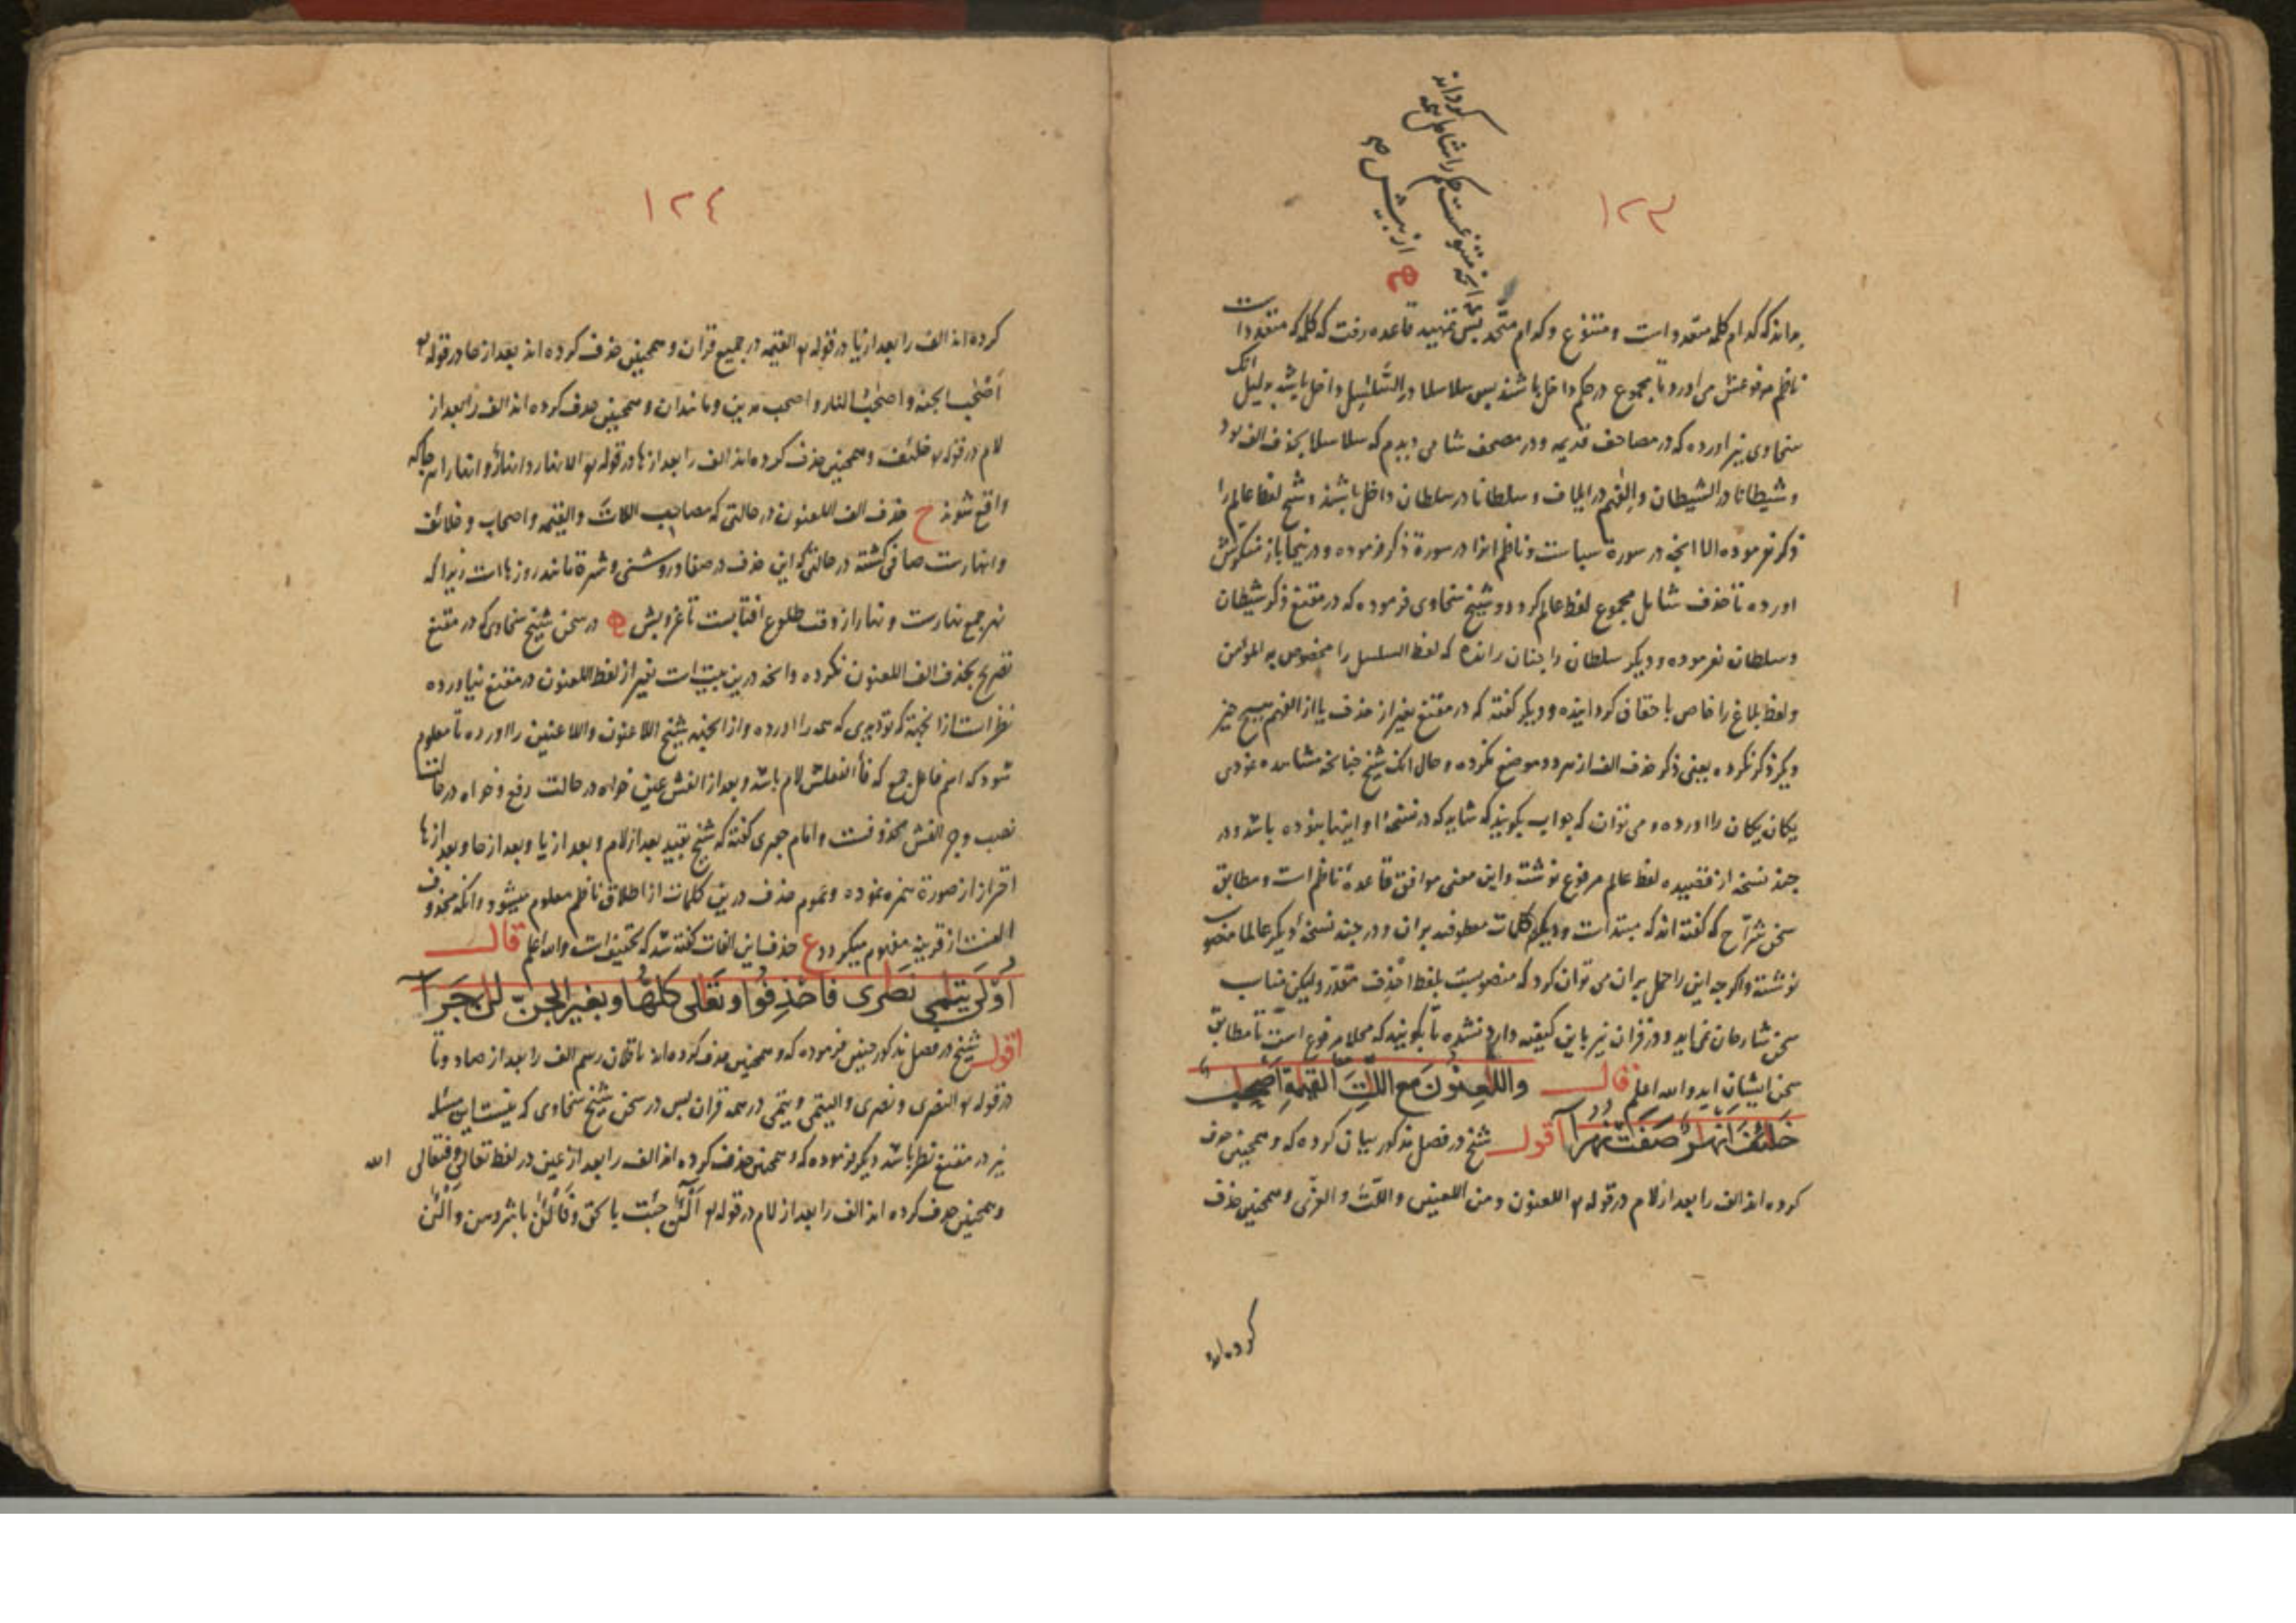 ۱۲۳
بداند که کدام کلمه متعدد است و متنوع و کدام متّحد پس تمهید قاعده رفت که کلمه که متعدد است
ناظم مرفوعش می اورد و تا مجموع در حکم داخل باشند پس سلاسلا در السَّلٰسِل داخل باشد بدلیل انک
سخاوی نیز اورده که در مصاحف قدیمه و در مصحف شامی دیدم که سلاسلا بحذف الف بود
و شیطانا در الشیطان و الٰفهم در ایلاف و سلطانا در سلطان داخل باشند و شیخ لفظ عالم را
ذکر نفرموده الا انچه در سورة سباست و ناظم انرا در سورة ذکر فرموده و در ینجا باز منکرش
اورده تا حذف شامل مجموع لفظ عالم کردد و شیخ سخاوی فرموده که در مقنع ذکر شیطان
و سلطان نفرموده و دیکر سلطان را چنان رانده که لفظ السلسل را مخصوص به المؤمن
و لفظ بلاغ را خاص باحقاف کردانیده و دیکر کفته که در مقنع بغیر از حذف یا از الفهم هیچ چیز
دیکر ذکر نکرده یعنی ذکر حذف الف از هر دو موضع نکرده و حال انک شیخ چنانچه مشاهده نمودی
یکان یکان را اورده و می توان که جواب بکویند که شاید که در نسخهٔ او اینها نبوده باشد و در
چند نسخه از قصیده لفظ عالم مرفوع نوشت و این معنی موافق قاعدهٔ ناظم است و مطابق
سخن شرّاح که کفته اند که مبتداست و دیکر کلمات معطوفند بران و در چند نسخهٔ دیکر عالما منصوب
نوشته و اکرچه این را حمل بران می توان کرد که منصوبست بلفظ احْذِف مقدّر ولیکن مناسب
سخن شارحان نمی اید و در قران نیز باین کیفیه وارد نشده تا بکویند که محلا مرفوع است تا مطابق
سخن ایشان اید والله اعلم قال وَاللّٰعِنُونَ مع اللّٰتَ القیٰمة اَصْحٰب
خَلٰئِفَ اَنْهٰرُ صَفَتْ نُهُرَا اقول شیخ در فصل مذکور بیان کرده که و همچنین حذف
کرده اند الف را بعد از لام در قوله اللعنون و من اللعبین و اللّٰتَ و العزّی و همچنین حذف
کرده اند
۱۲٤
کرده اند الف را بعد از یا در قوله القیمه در جمیع قران و همچنین حذف کرده اند بعد از حا در قوله
اَصْحٰب الجنه و اصحٰبُ النار و اصحب مدین و مانند ان و همچنین حذف کرده اند الف را بعد از
لام در قوله خلئف و همچنین حذف کرده اند الف را بعد از ها در قوله الانهار و انهارٌ و انهارا هر جا که
واقع شوند ح حذف الف اللعنون در حالتی که مصاحب اللات و القیمه و اصحاب و خلائف
و انهارست صافی کشته در حالتی که این حذف در صفا و روشنی و شهرة مانند روزهاست زیرا که
نهر جمع نهارست و نهار از وقت طلوع افتابست تا غروبش در سخن شیخ سخاوی که در مقنع
تصریح بحذف الف اللعنون نکرده و انچه درین بیت است بغیر از لفظ اللعنون در مقنع نیاورده
نظر است از انجهة که تو دیدی که همه را اورده و از انجمله شیخ اللاعنون و اللاعنین را اورده تا معلوم
شود که اسم فاعل جمع که فأ الفعلش لام باشد و بعد از الفش عین خواه در حالت رفع و خواه در حالت
نصب و جر الفش محذوفست و امام جعبری کفته که شیخ بقید بعد از لام و بعد از یا و بعد از حا و بعد از ها
احتراز از صورة همزه نموده و عموم حذف درین کلمات از اطلاق ناظم معلوم میشود و انکه محذوف
الفست از قرینه مفهوم میکردد ع حذف این الفات کفته شد که تحقیق است والله اعلم قال
اُوْلٰی یَتٰمٰی نَصٰرٰی فَاحْذِفُوا وتَعٰلٰی کُلّهَا و بغیر الجنّ لٰن جَرَا
اقول شیخ در فصل مذکور چنین فرموده که و همچنین حذف کرده اند ناقلان رسم الف را بعد از صاد و تا
در قوله النصری و نصری و الیتمی و یتمی در همه قران پس در سخن شیخ سخاوی که نیست این مسئله
نیز در مقنع نظر باشد دیکر فرموده که و همچنین حذف کرده اند الف را بعد از عین در لفظ تعالی و فتعالی الله
و همچنین حذف کرده اند الف را بعد از لام در قوله اَلْـٰٔنَ جئت بالحق و فَالْـٰٔنَ باشروهن و الْـٰٔن